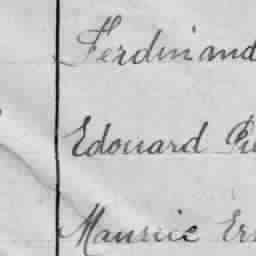 Ferdinand
Edouard
Maurice